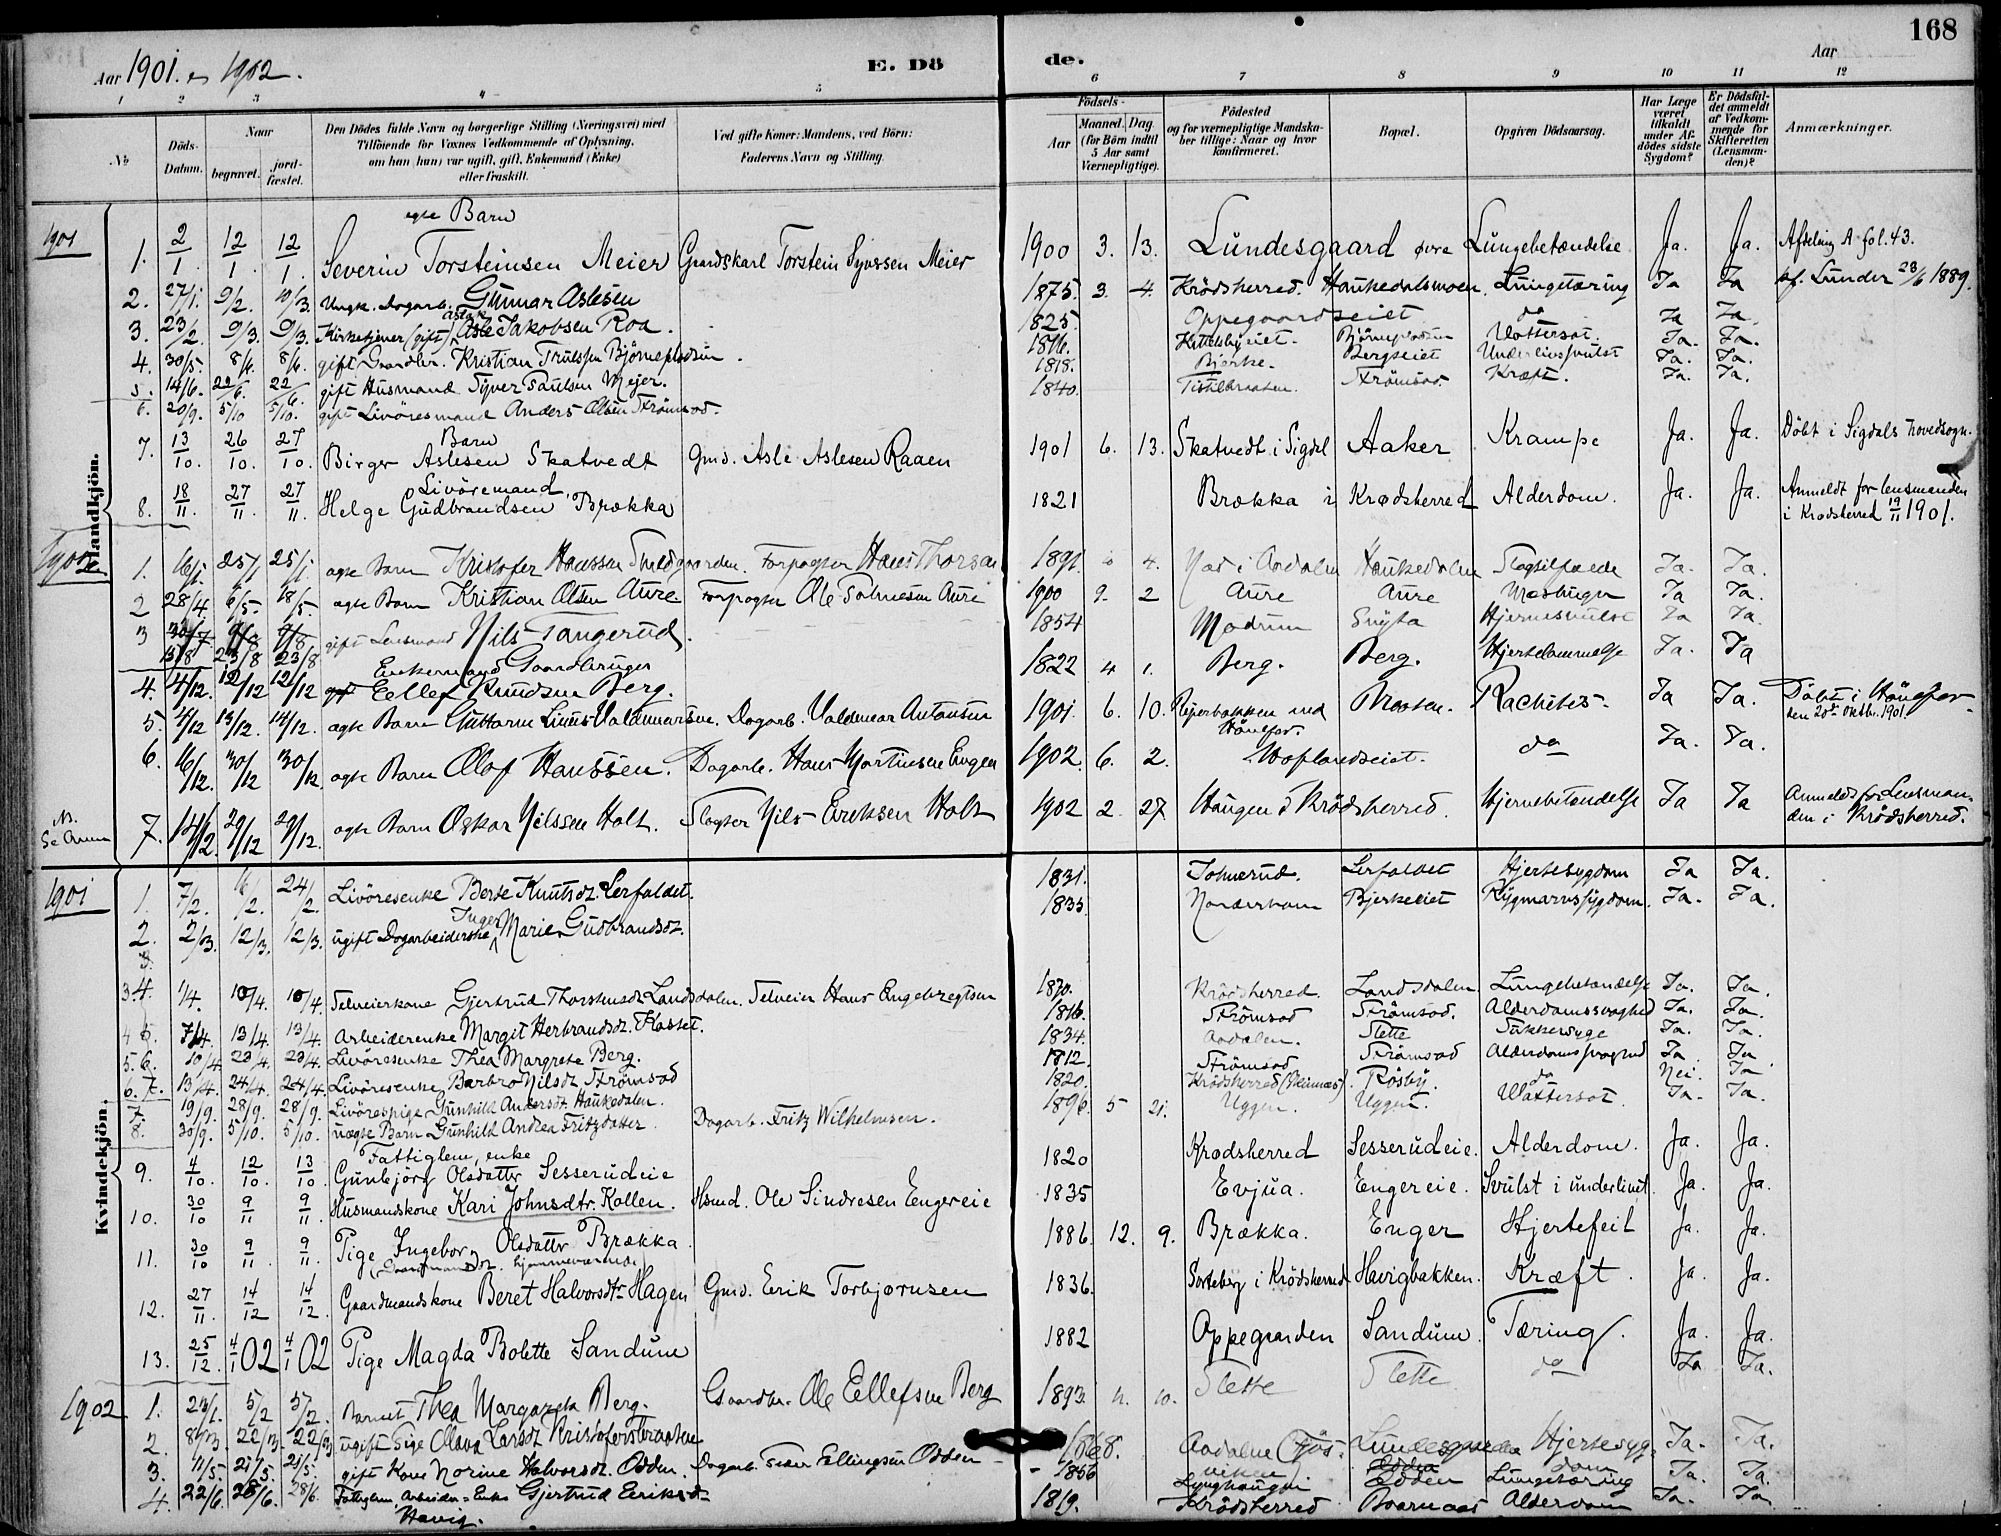 168
Aar 1901. og 1902.
E. Dö de.
Aar
1 2 3 4 5 6 7 8 9 10 11 12
No.
Döds-Datum.
Naar
begravet.
jord-fæstet.
Den Dödes fulde Navn og borgerlige Stilling (Næringsvei) med
Tilföiende for Voxnes Vedkommende af Oplysning,
om han (hun) var ugift, gift, Enkemand (Enke)
eller fraskilt.
Ved gifte Koner: Mandens, ved Börn:
Faderens Navn og Stilling.
Födsels-
Aar
Maaned. Dag
(for Börn indtil
5 Aar samt
Værnepligtige).
Födested
og for værnepligtige Mandska-
ber tillige: Naar og hvor
konfirmeret.
Bopæl.
Opgiven Dödsaarsag.
Har Læge
været
tilkaldt
under Af-
dödes sidste
Sygdom?
Er Dödsfal-
det anmeldt
af Vedkom-
mende for
Skifteretten
(Lensman-
den)?
Anmærkninger.
Mandkjön.
1901
ægte Barn
1. 2/1 12/1 12/1 Severin Torsteinsen Meier Gaardskarl Torstein Syversen Meier 1900 3. 13. Lundesgaard øvre Lungebetændelse Ja. Ja. Afdeling A fol. 43.
2. 27/1. 9/2 10/3. Ungk. Dagarb. Gunnar Aslesen 1875. 3. 4. Krödsherred. Haukedalsmoen. Lungetæring Ja Ja kf. Lunder 23/6 1889.
3. 23/2. 9/3. 9/3. Kirketjener (gift) Asle Jakobsen Roa. 1825. Oppegaardseiet do Ja Ja.
4. 30/5. 8/6. 8/6. gift Gaardbr. Kristian Trulssen Björneplodsen. 1816. Björneplodsen Vattersot. Ja. Ja.
5. 14/6. 22/6. 22/6. gift Husmand Syver Paulsen Mejer. 1818. Bjerke. Bergseiet Underlivssvulst Ja. Ja.
6. 20/9. 5/10 5/10. gift Livöresmand Anders Olsen Strömsod. 1840. Strömsod Kræft. Ja. Ja.
Barn
7. 13/10. 26/10. 27/10. Birger Aslesen Skatvedt Gmd. Asle Aslesen Raaen 1901 6. 13. Skatvedt i Sigdal Aaker Krampe Ja. Ja. Döbt i Sigdals hovedsogn.
Livöremand,
8. 18/11. 27/11. 27/11. Helge Gudbrandsen Brækka 1821 Brækka i Krødsherred Alderdom. Ja. Ja. Anmeldt for lensmanden
i Krødsherred 19/11 1901.
1902
1. 16/1. 25/1 25/1 ægte Barn Kristofer Hanssen Forpagter Hans Thorsen 1891. 4. i Aadalen Haukedalen Ja. Ja.
2 28/4. 6/5. 18/5. ægte Barn Kristian Olsen Aure Forpagter Ole Aure 1900 9. 2 Aure Aure Ja Ja.
3 30/7 9/8 9/8 gift Lensmand Nils Tangerud. 1854 Modum Hjernesvulst Ja Ja.
13/8 23/8 23/8 Enkemand Gaardbruger
4. 4/12. 12/12 12/12 Eellef Knudsen Berg. 1822 4 1. Berg. Berg. Hjertelammelse Ja. Ja
5. 4/12 14/12. 14/12. ægte Barn Guttorm Linus Valdemarsen. Dagarb. Valdemar Antonsen 1901. 6. 10. ved Hönefos. Moen. Rachitis. Ja Ja. Döbt i Hönefos
den 20de Oktbr. 1901.
6. 16/12. 30/12 30/12 ægte Barn Olaf Hanssen. Dagarb. Hans Martinsen Engen 1902. 6. 2. do Ja. Ja.
NB.
Se Anm 7. 14/12. 29/12 29/12. ægte Barn Oskar Nilssen Holt. Slagter Nils Eriksen Holt 1902 2. 27 Haugen i Krödsherred. Hjernebetændelse Ja Ja Anmeldt for Lensman-
den i Krödsherred.
Kvindekjön.
1901
1. 7/2. 16/2. 24/2. Livöresenke Berte Knutsdt. Lerfaldet. 1831. Johnerud. Lerfaldet Hjertesygdom Ja Ja.
2. 2/3. 12/3. 12/3. ugift Dagarbeiderske Inger Marie Gudbrandsdt. 1835 Norderhov Bjerkeeiet Rygmarvssygdom. Ja. Ja.
3.
3.4. 1/4. 10/4. 10/4. Selveierkone Gjertrud Thorstensdt. Landsdalen. Selveier Hans Engebregtsen 1870. Krödsherred. Landsdalen Lungebetændelse Ja. Ja.
4 5. 7/4. 13/4. 13/4. Arbeiderenke Margit Herbrandsdt. Flasset. 1816. Strömsod Strömsod. Alderdomssvaghed Ja. Ja.
5. 6. 10/4 23/4. 23/4. Livöresenke Thea Margrete Berg. 1834. Aadalen. Slette Sukkersyge Ja. Ja.
6. 7. 13/4. 24/4. 24/4. Livöresenke Barbro Nilsdt. Strömsod 1812. Strömsod Strömsod Alderdomssvaghed Ja. Ja
7. 19/9. 28/9. 28/9. Livörespige Gunhild Andersdt. Haukedalen. 1820. Krödsherred Rösby. do Nei. Ja
8. 30/9. 5/10. 5/10. uægte Barn Gunhild Andrea Fritzdatter Dagarb. Fritz Wilhelmsen. 1896. 5 21. Uggen. Uggen. Vattersot. Ja. Ja.
Fattiglem, enke
9. 4/10. 12/10. 13/10. Gunbjörg Olsdatter Sesserudeie 1820 Krødsherred Sesserudeie. Alderdom. Ja. Ja.
10. 30/10 9/11 9/11. Husmandskone Kari Johnsdtr. Kollen. Hsmd. Ole Sindresen Engereie 1835 Evjua. Engereie. Svulst i underlivet. Ja. Ja.
11. 30/10 9/11. 9/11. Pige Ingeborg Olsdatter Brækka. 1886. 12. 9. Brækka. Enger Hjertefeil Ja. Ja.
(Gaardmandsdt. hjemmeværende)
12. 27/11. 14/12 14/12. Gaardmandskone Beret Halvorsdtr Hagen Gmd. Erik Torbjørnsen 1836. Sorteberg i Krödsherred Havigbakken. Kræft. Ja. Ja.
13. 25/12. 4/1 02 4/1 02 Pige Magda Bolette Sandum 1882 Oppegaarden Sandum. Tæring. Ja. Ja.
1902
1. 23/1. 5/2 5/2. Barnet Thea Margareta Berg. Gaardbr. Ole Eellefsen Berg 1893. 10. Slette Slette do Ja Ja.
2. 8/3. 22/3. 22/3 ugift Pige Olava Larsdt. Kristoffersbraaten 1868. Aadalen Hjertesyg-
dom Ja. Ja.
3. 11/5. 21/5. 21/5. gift Kone Norine Halvorsdt. Odden. Dagarb. Ellingsen Odden 1856 Odden Lungetæring Ja. Ja.
4. 22/6. 28/6. 28/6. Fattiglem, Arbeider-Enke Gjertrud Eeriksdt. 1819. Krödsherred Alderdom Ja. Ja
Havig.